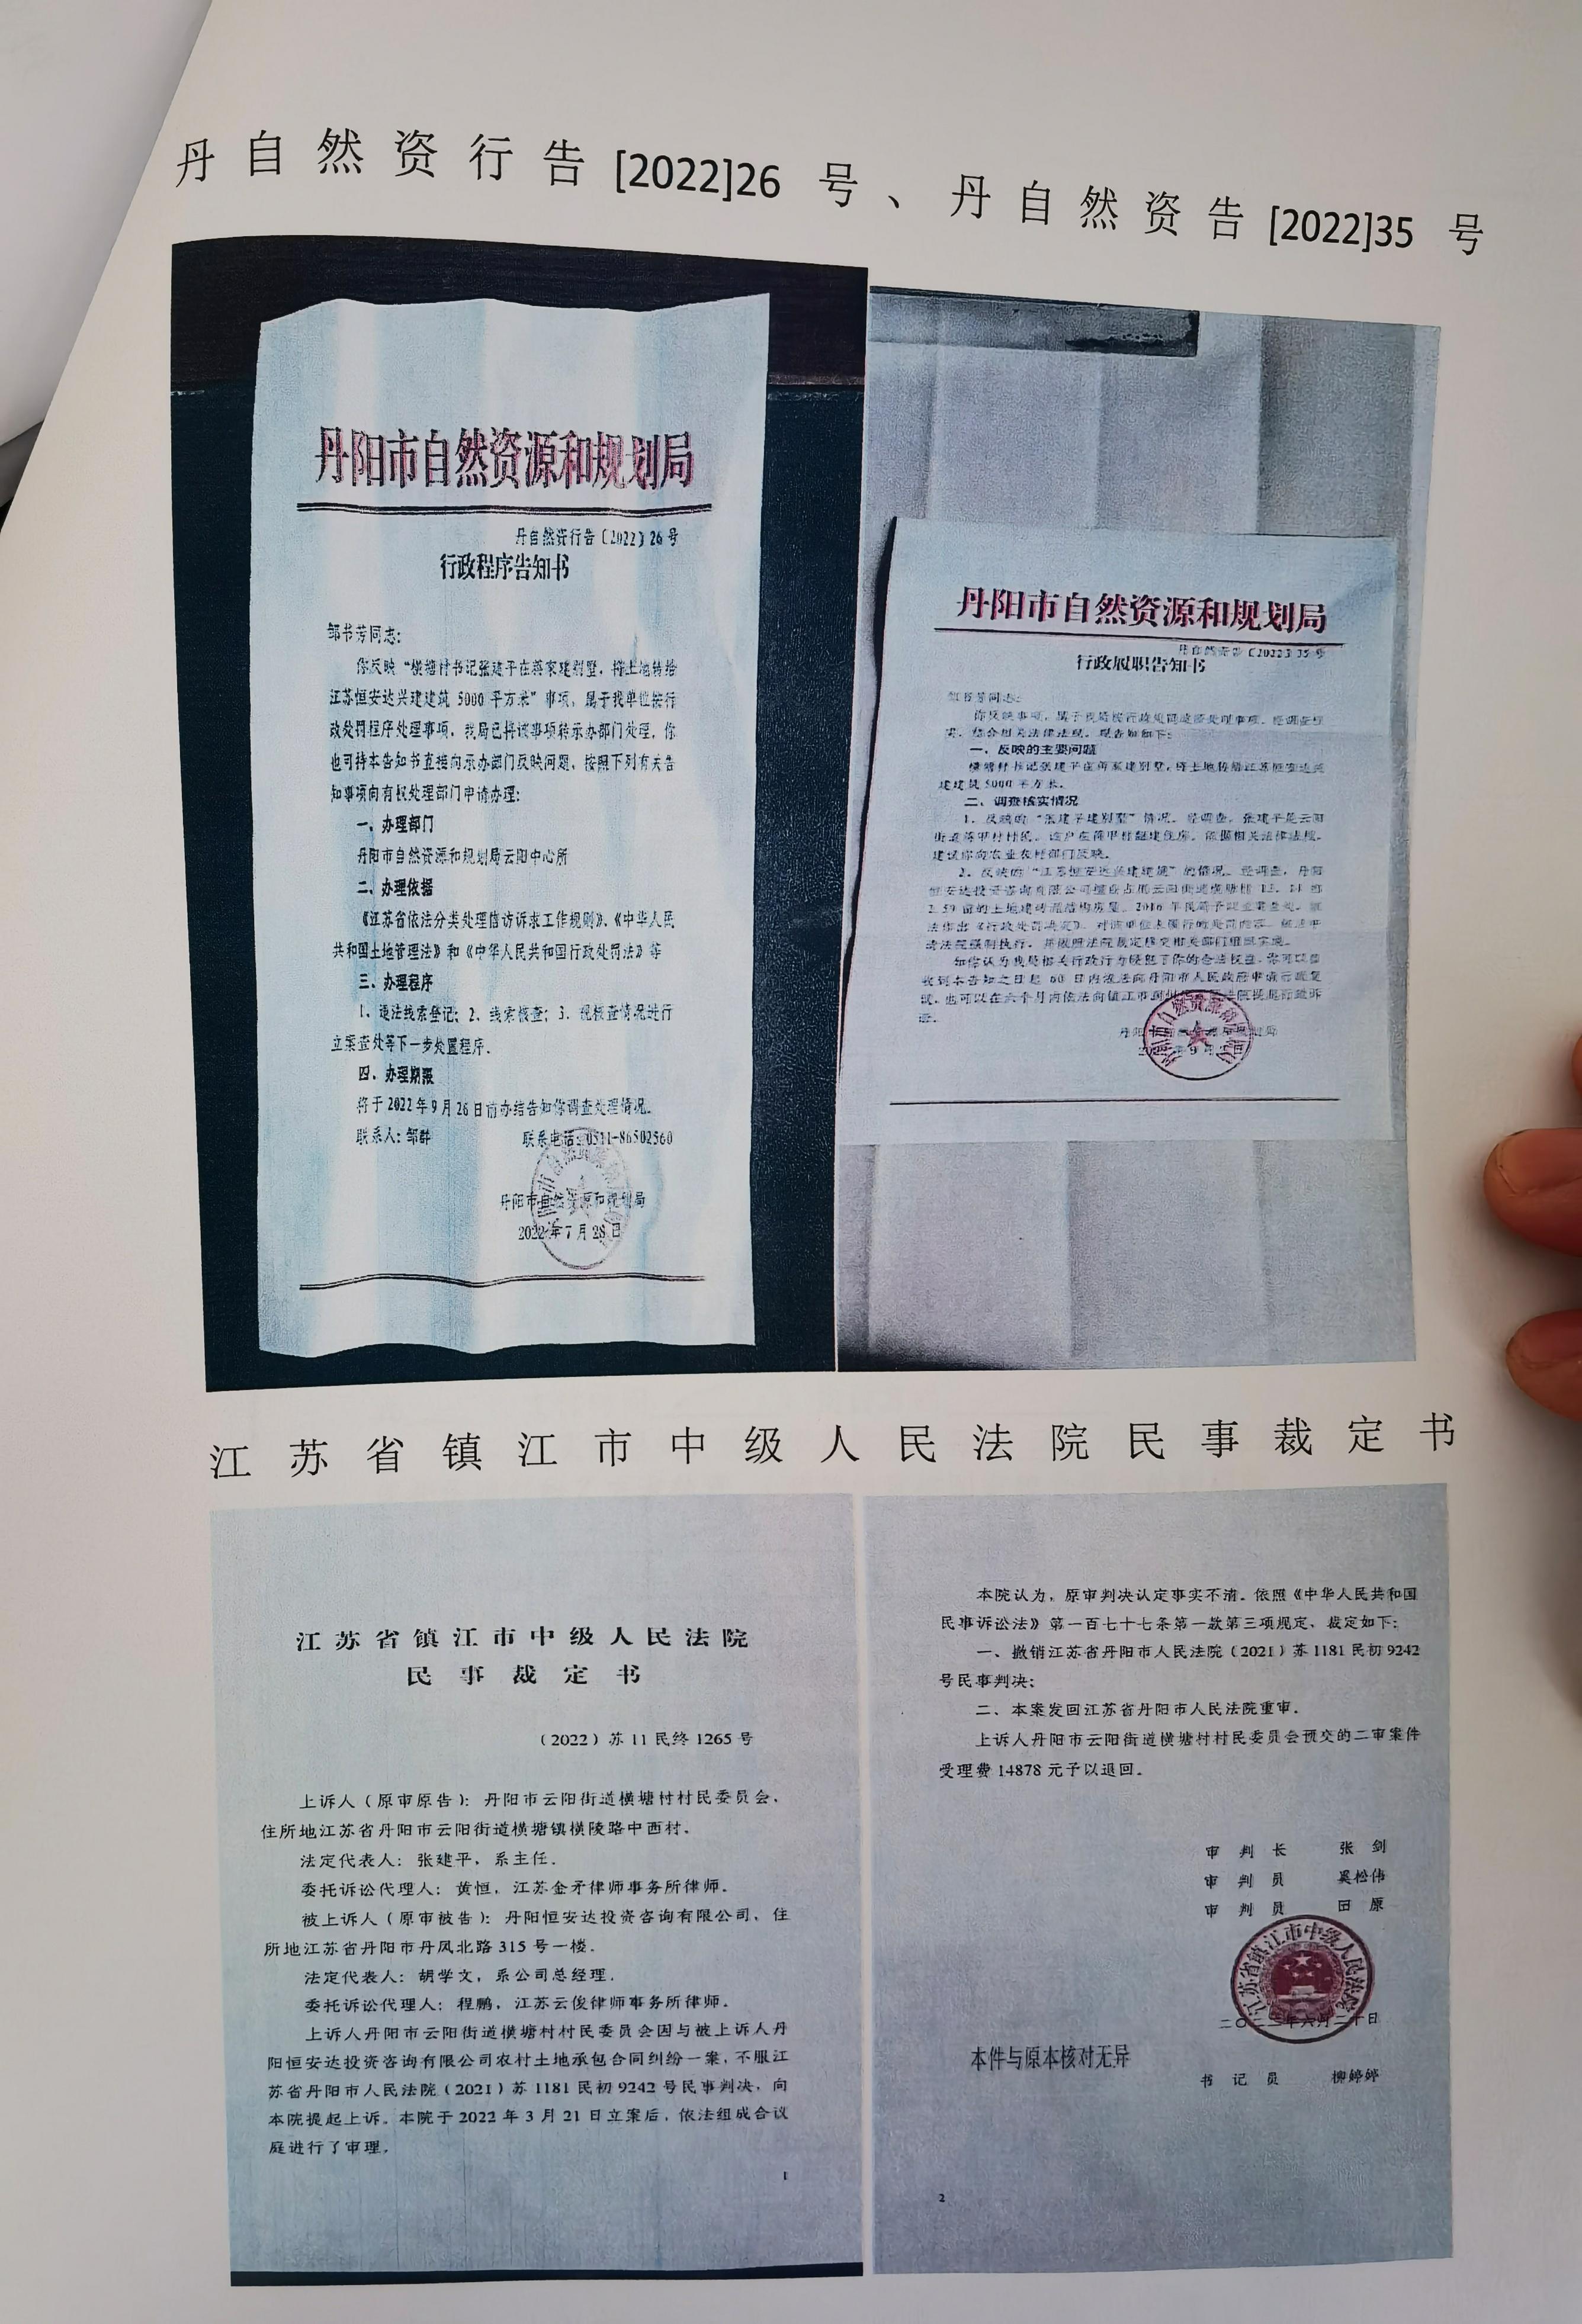 丹自然资行告[2022]26 号、丹自然资告[2022]35 号
丹阳市自然资源和规划局
丹自然资行告〔2022〕26号
行政程序告知书
邹书芳同志:
你反映“横塘村书记张建平在蒋家建别墅，将土地转给
江苏恒安达兴建建筑 5000 平方米”事项，属于我单位按行
政处罚程序处理事项，我局已将该事项转承办部门处理，你
也可持本告知书直接向承办部门反映问题，按照下列有关告
知事项向有权处理部门申请办理:
一、办理部门
丹阳市自然资源和规划局云阳中心所
二、办理依据
《江苏省依法分类处理信访诉求工作规则》、《中华人民
共和国土地管理法》和《中华人民共和国行政处罚法》等
三、办理程序
1、违法线索登记；2、线索核查；3、视核查情况进行
立案查处等下一步处置程序。
四、办理期限
将于2022年9月26日前办结告知你调查处理情况。
联系人:邹群 联系电话:0511-86502560
丹阳市自然资源和规划局
2022年7月28日
丹阳市自然资源和规划局
丹自然资告〔2022〕35号
行政履职告知书
邹书芳同志:
你反映事项，属于我局按行政处罚程序处理事项。经调查核
实，结合相关法律法规，现告知如下:
一、反映的主要问题
横塘村书记张建平在蒋家建别墅，将土地转给江苏恒安达兴
建建筑 5000 平方米。
二、调查核实情况
1、反映的“张建平建别墅”情况。经调查，张建平是云阳
街道蒋甲村村民，该户在蒋甲村翻建住房。依据相关法律法规，
建议你向农业农村部门反映。
2、反映的“江苏恒安达兴建建筑”的情况。经调查，丹阳
恒安达投资咨询有限公司擅自占用云阳街道横塘村
的土地建砖混结构房屋，2016年我局予以立案查处，依
法作出《行政处罚决定》，对该单位未履行的处罚内容，
请法院强制执行，并依照法院裁定移交相关部门组织实施。
如你认为我局相关行政行为侵犯了你的合法权益，你可以自
收到本告知之日起 60 日内依法向丹阳市人民政府申请行政复
议，也可以在六个月内依法向镇江市 法院提起行政诉
讼。
江苏省镇江市中级人民法院民事裁定书
江苏省镇江市中级人民法院
民事裁定书
（2022）苏 11 民终 1265 号
上诉人（原审原告）：丹阳市云阳街道横塘村村民委员会，
住所地江苏省丹阳市云阳街道横塘镇横陵路中西村。
法定代表人：张建平，系主任。
委托诉讼代理人：黄恒，江苏金矛律师事务所律师。
被上诉人（原审被告）：丹阳恒安达投资咨询有限公司，住
所地江苏省丹阳市丹凤北路 315 号一楼。
法定代表人：胡学文，系公司总经理。
委托诉讼代理人：程鹏，江苏云俊律师事务所律师。
上诉人丹阳市云阳街道横塘村村民委员会因与被上诉人丹
阳恒安达投资咨询有限公司农村土地承包合同纠纷一案，不服江
苏省丹阳市人民法院（2021）苏 1181 民初 9242 号民事判决，向
本院提起上诉。本院于 2022 年 3 月 21 日立案后，依法组成合议
庭进行了审理。
1
本院认为，原审判决认定事实不清。依照《中华人民共和国
民事诉讼法》第一百七十七条第一款第三项规定，裁定如下：
一、撤销江苏省丹阳市人民法院（2021）苏 1181 民初 9242
号民事判决；
二、本案发回江苏省丹阳市人民法院重审。
上诉人丹阳市云阳街道横塘村村民委员会预交的二审案件
受理费 14878 元予以退回。
审 判 长 张 剑
审 判 员 奚松伟
审 判 员 田 原
江苏省镇江市中级人民法院
二〇二二年六月二十日
本件与原本核对无异
书 记 员 柳婷婷
2